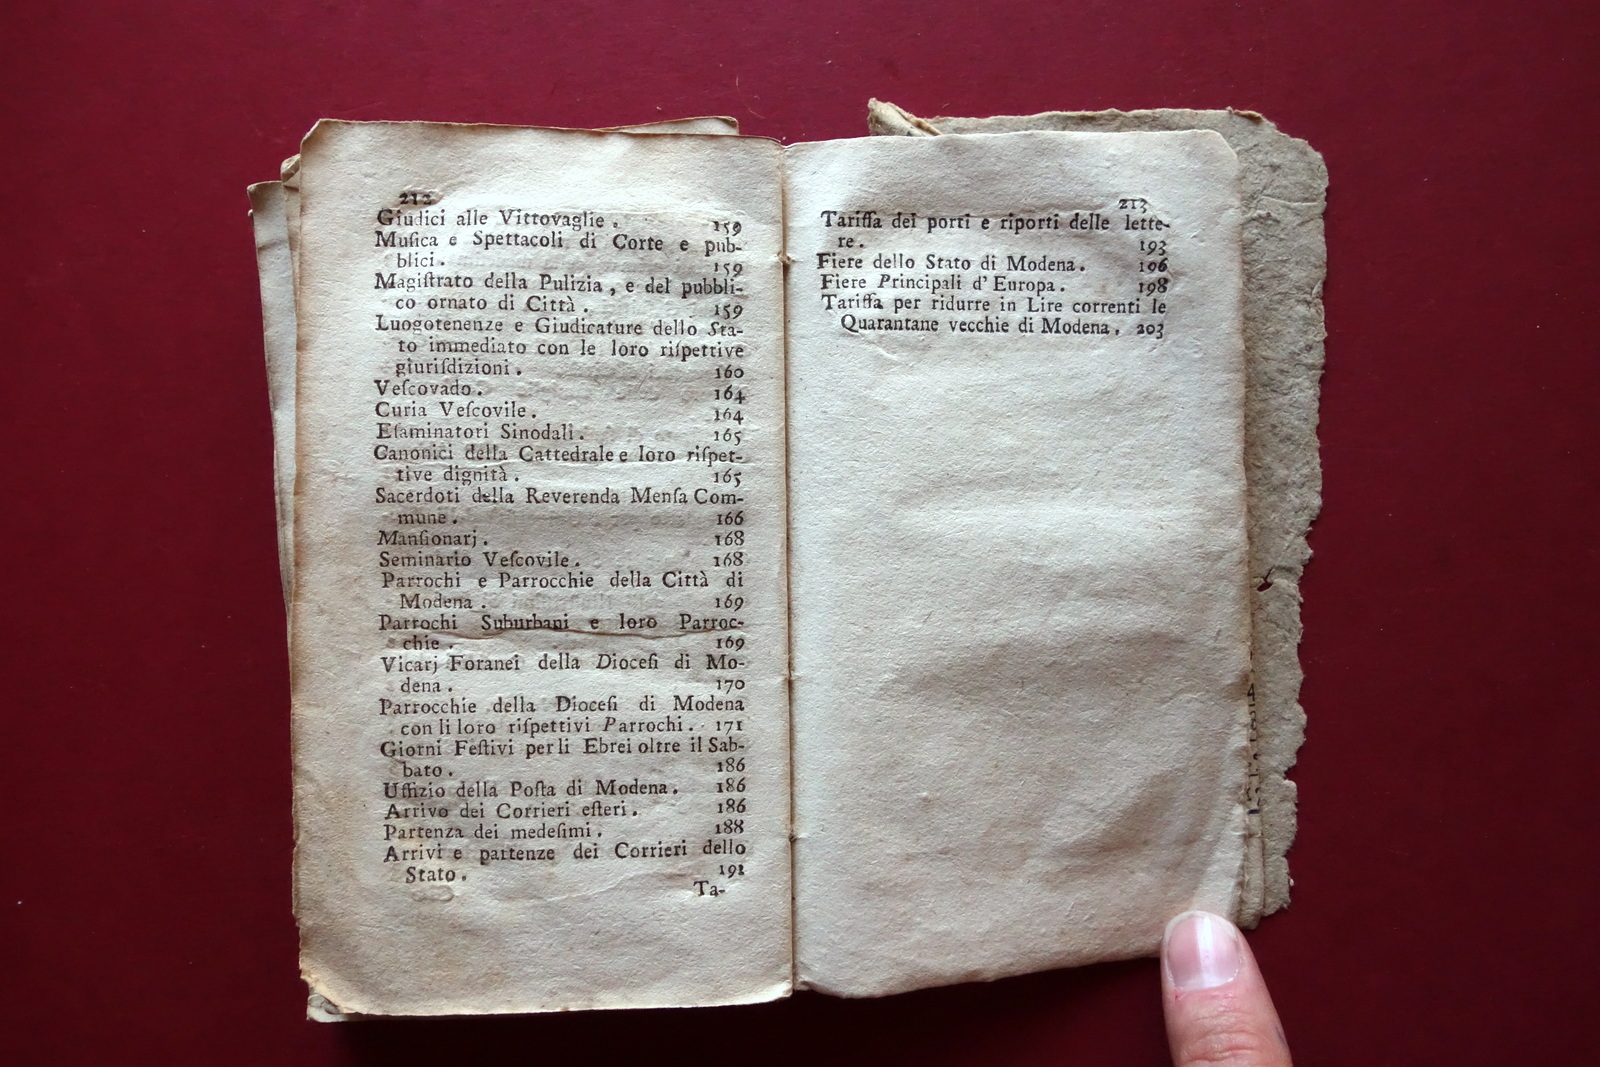 212
Giudici alle Vittovaglie . 159
Muſica e Spettacoli di Corte e pub-
blici . 159
Magiſtrato della Pulizia , e del pubbli-
co ornato di Città . 159
Luogotenenze e Giudicature dello Sta-
to immediato con le loro riſpettive
giuriſdizioni . 160
Veſcovado . 164
Curia Veſcovile . 164
Eſaminatori Sinodali . 165
Canonici della Cattedrale e loro riſpet-
tive dignità . 165
Sacerdoti della Reverenda Menſa Com-
mune . 166
Manſionarj . 168
Seminario Veſcovile . 168
Parrochi e Parrocchie della Città di
Modena . 169
Parrochi Suburbani e loro Parroc-
chie . 169
Vicarj Foranei della Dioceſi di Mo-
dena . 170
Parrocchie della Dioceſi di Modena
con li loro riſpettivi Parrochi . 171
Giorni Feſtivi per li Ebrei oltre il Sab-
bato . 186
Uffizio della Poſta di Modena . 186
Arrivo dei Corrieri eſteri . 186
Partenza dei medeſimi . 188
Arrivi e partenze dei Corrieri dello
Stato . 191
Ta-
213
Tariffa dei porti e riporti delle lette-
re . 193
Fiere dello Stato di Modena . 196
Fiere Principali d' Europa . 198
Tariffa per ridurre in Lire correnti le
Quarantane vecchie di Modena . 203